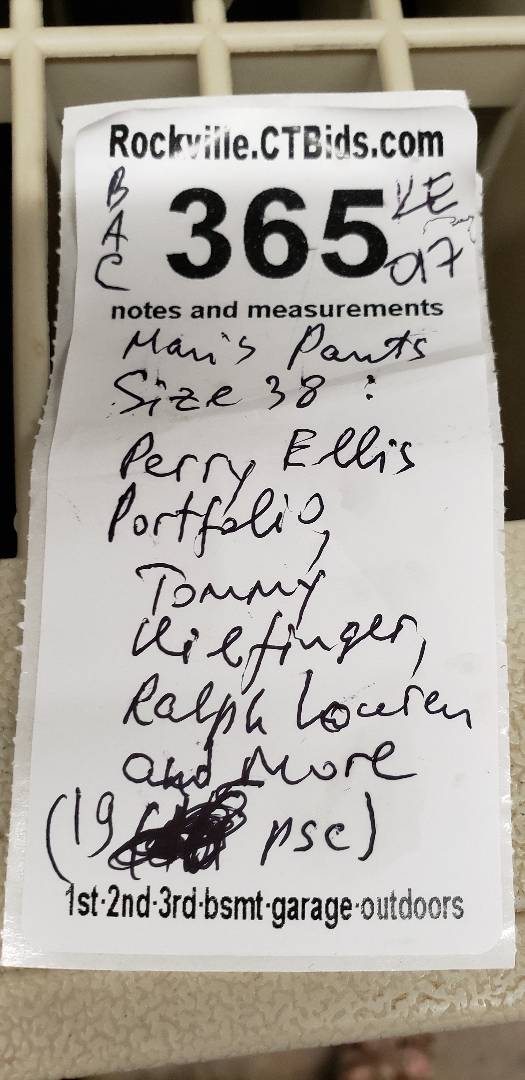 Rockville.CTBids.com
BAC 365 KE
017
notes and measurements
Man's Pants
Size 38 :
Perry Ellis
Portfolio,
Tommy
Hilfinger,
Ralph Louren
and More
(19 psc)
1st·2nd·3rd·bsmt·garage·outdoors